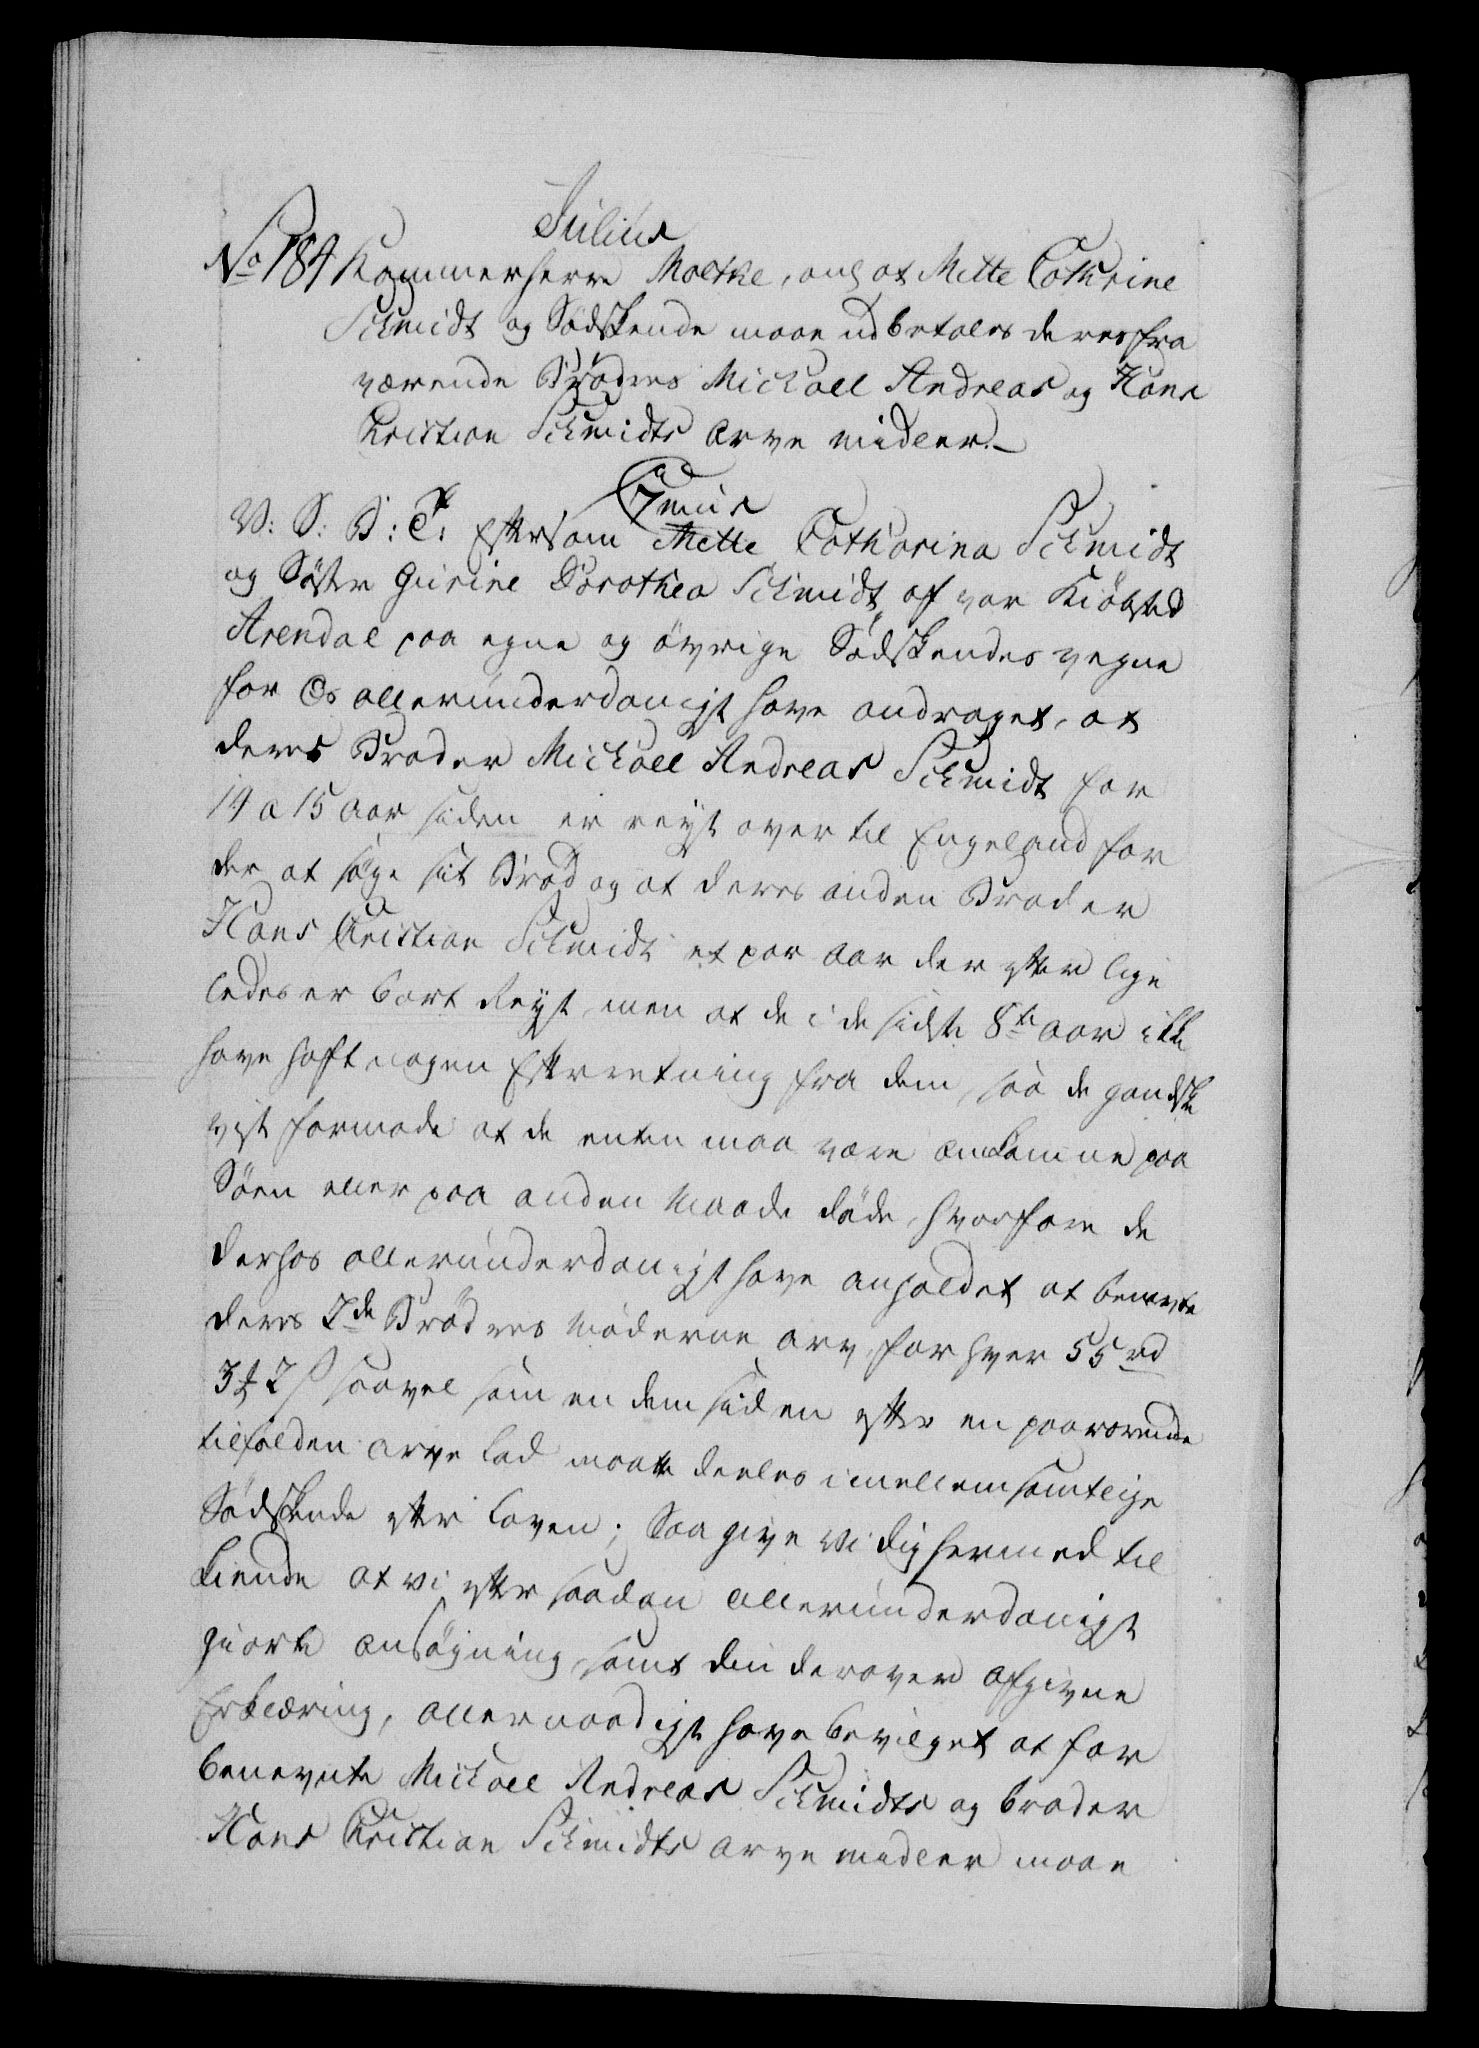 Julius
No 184 Kammerherre Moltke, ang at Mette Cathrine
Schmidt og Sødskende maae udbetales deres fra
værende Brødres Michael Andreas og Hans
Christian Schmidts Arve midler.
V: S: B: T: Eftersom Mette Catharina Schmidt
og Søster Gurine Dorothea Schmidt af vor Kiøbsted
Arendal paa egne og øvrige Sødskendes vegne
for Os allerunderdanigst have andraget, at
deres Broder Michael Andreas Schmidt for
14 a 15 aar siden er reyst over til Engeland for
der at søge sit Brød og at deres anden Broder
Hans Christian Schmidt et par aar der efter lige
ledes er bort Reyst, men at de i de sidste 8te aar ikke
have haft nogen Efterretning fra dem, saa de gandske
vist formode at de enten maa være omkomne paa
Søen eller paa anden Maade døde, hvorfore de
derhos allerunderdanigst have anholdet at benevnte
deres 2de Brødres Møderne arv, for hver 55 rd
3 ₰ 2 ß saavel som en dem siden efter en paarørende
tilfalden arve lod maatte deeles imellem samtlige
Sødskende efter Loven; Saa give Vi dig hermed til
kiende at vi efter saadan allerunderdanigst
giorte ansøgning, samt din derover afgivne
Erklæring, allernaadigst have bevilget at for
benevnte Michael Andreas Schmidts og broder
Hans Christian Schmidts arve midler maae